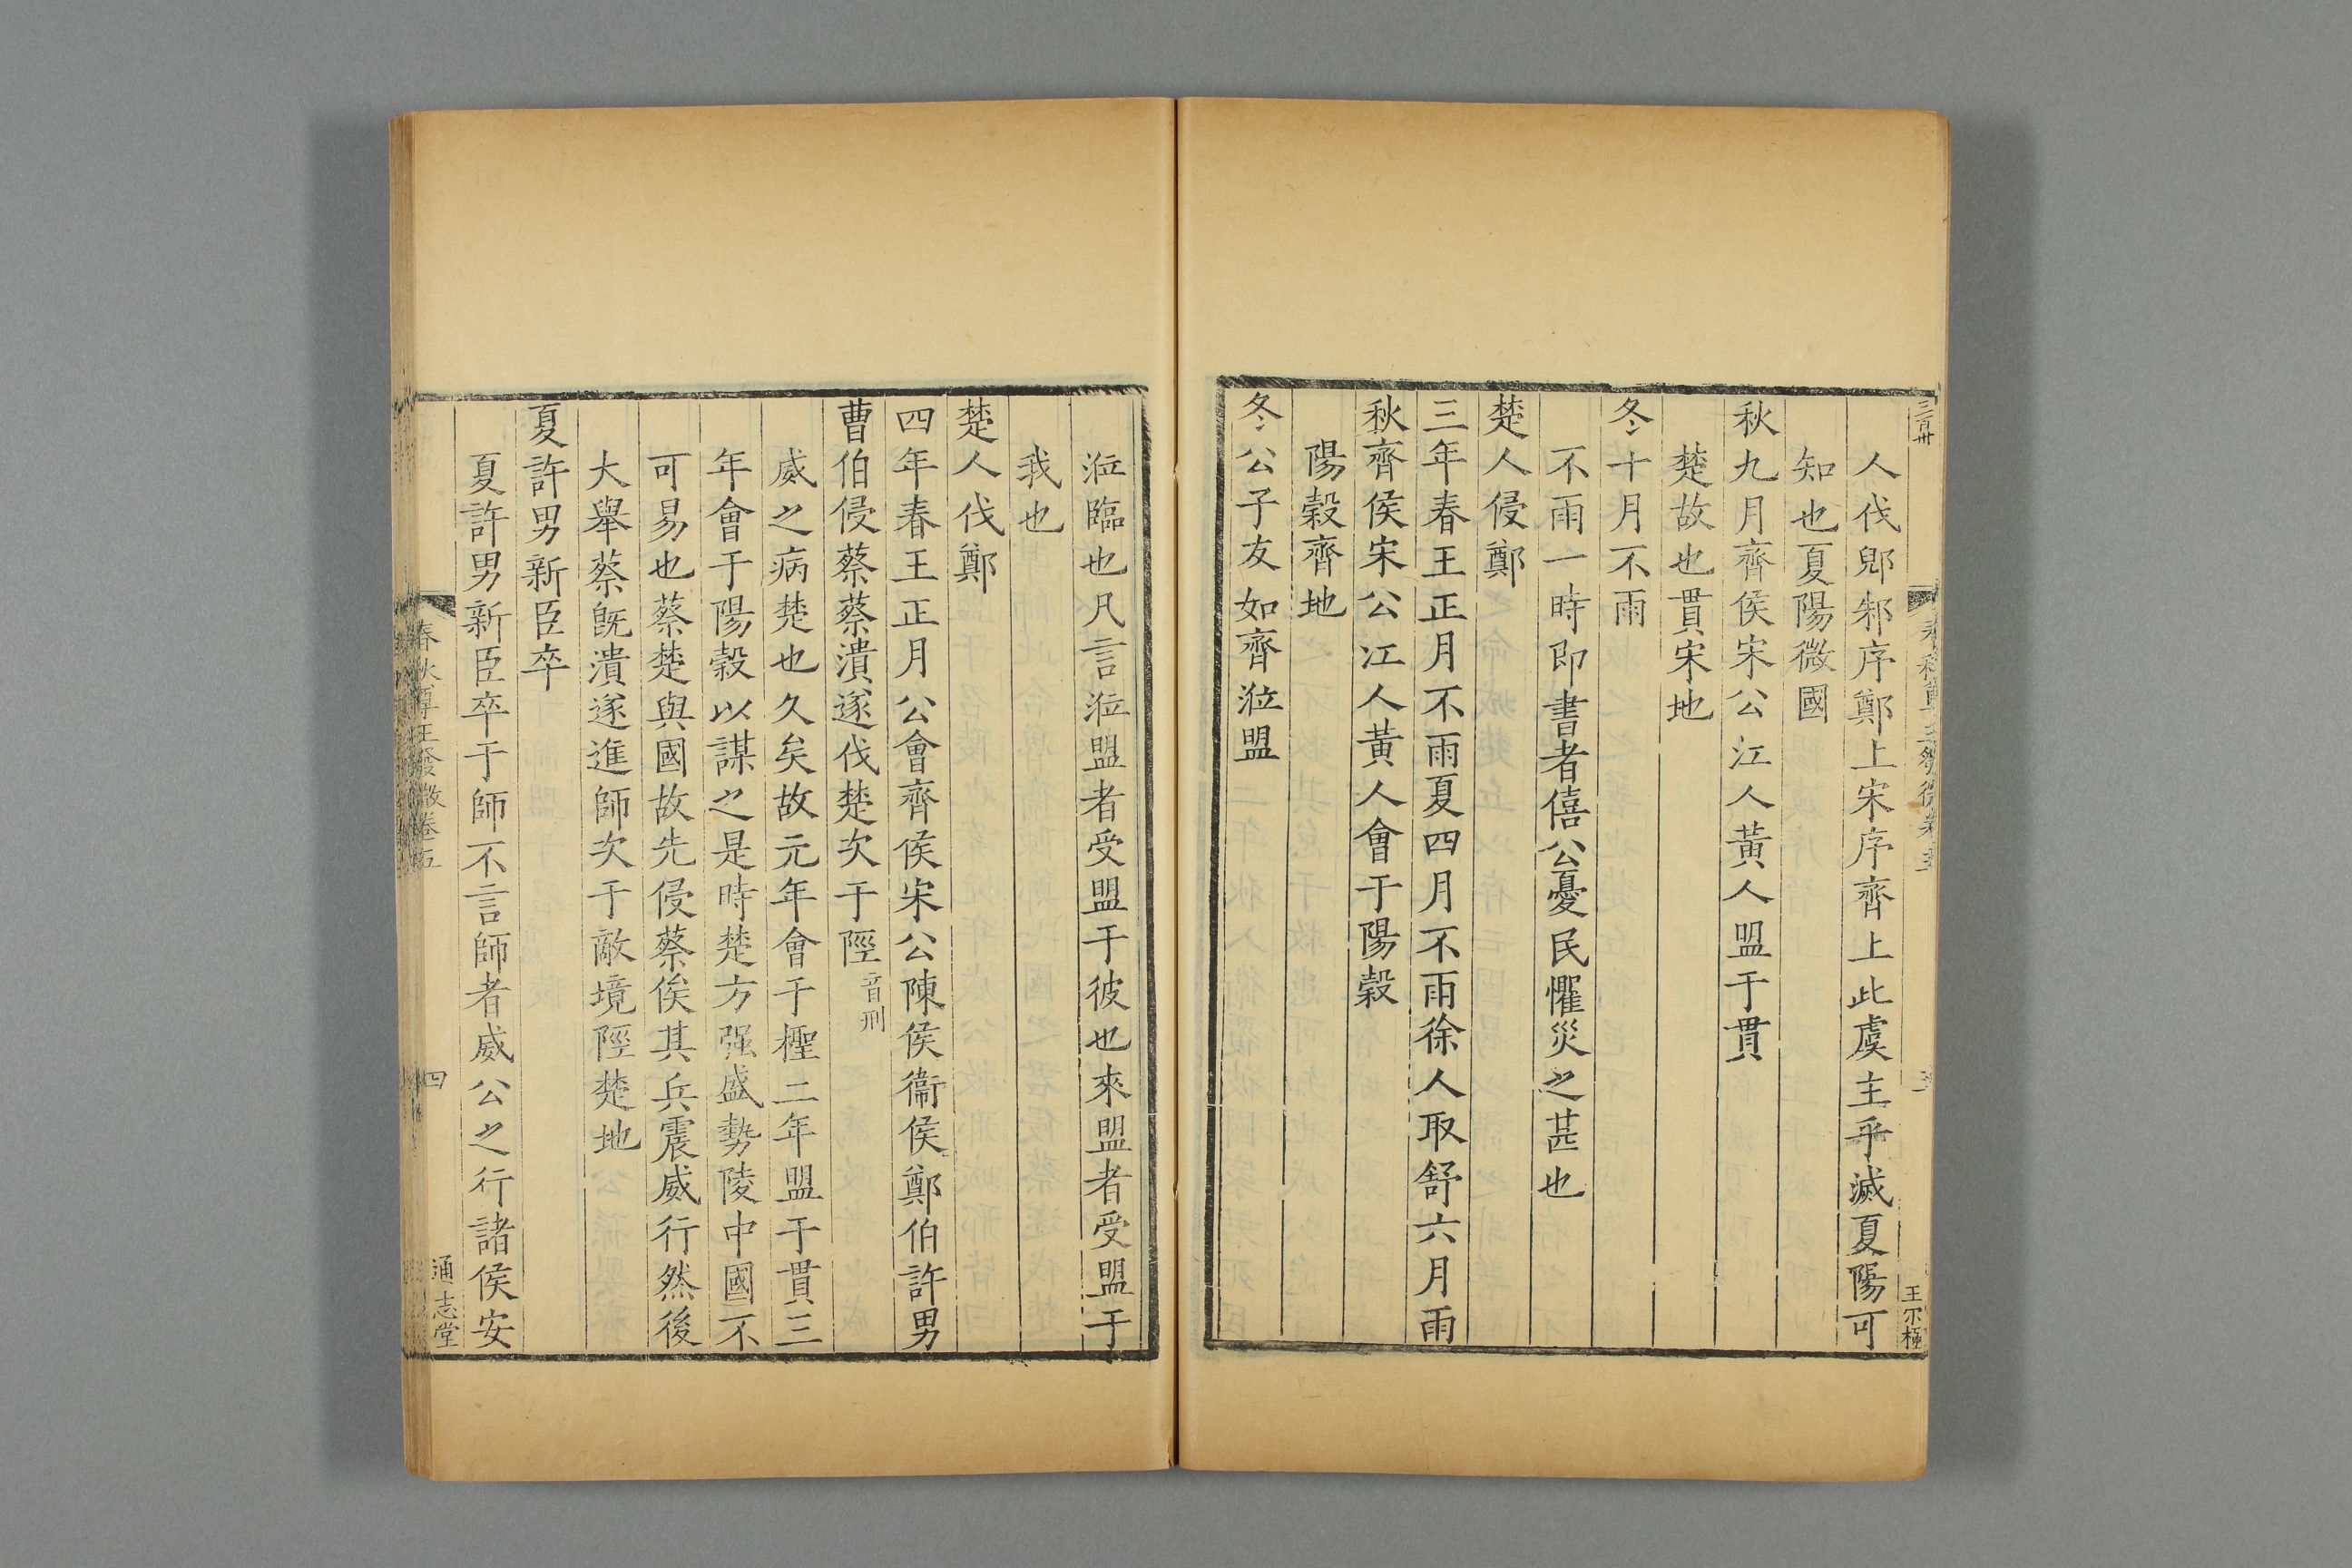 三百卅
春秋尊王發微卷五
三
王尔極
人伐郳邾序鄭上宋序齊上此虞主乎滅夏陽可
知也夏陽微國
秋九月齊侯宋公江人黃人盟于貫
楚故也貫宋地
冬十月不雨
不雨一時即書者僖公憂民懼災之甚也
楚人侵鄭
三年春王正月不雨夏四月不雨徐人取舒六月雨
秋齊侯宋公江人黃人會于陽穀
陽穀齊地
冬公子友如齊涖盟
涖臨也凡言涖盟者受盟于彼也來盟者受盟于
我也
楚人伐鄭
四年春王正月公會齊侯宋公陳侯衞侯鄭伯許男
曹伯侵蔡蔡潰遂伐楚次于陘音刑
威之病楚也久矣故元年會于檉二年盟于貫三
年會于陽穀以謀之是時楚方强盛勢陵中國不
可易也蔡楚與國故先侵蔡俟其兵震威行然後
大舉蔡旣潰遂進師次于敵境陘楚地
夏許男新臣卒
夏許男新臣卒于師不言師者威公之行諸侯安
春秋尊王發微卷五
四
通志堂